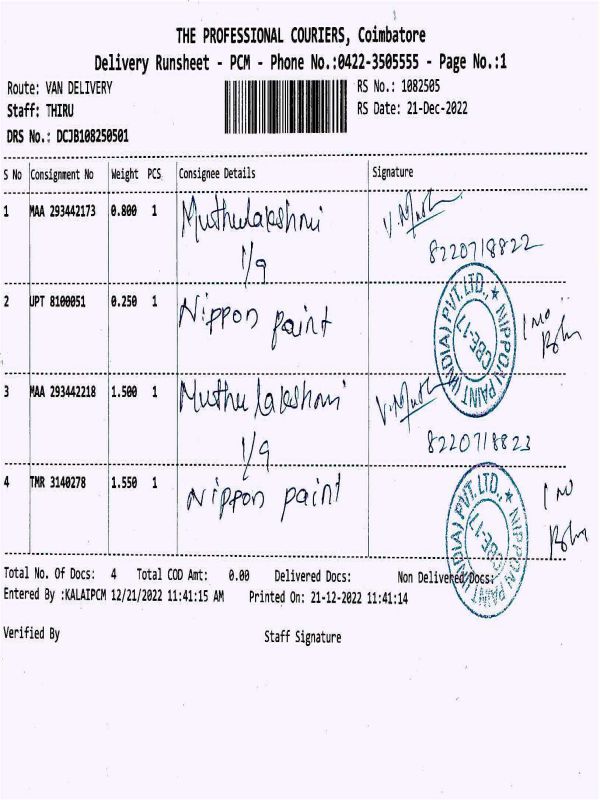 THE PROFESSIONAL COURIERS, Coimbatore
Delivery Runsheet - PCM - Phone No.:0422-3505555 - Page No.:1
Route: VAN DELIVERY RS No.: 1082505
Staff: THIRU RS Date: 21-Dec-2022
DRS No.: DCJB108250501
S No Consignment No Weight PCS Consignee Details Signature
1 MAA 293442173 0.800 1 Muthulakshmi
1/9 8220718822
2 UPT 8100051 0.250 1 Nippon paint 1 no
NIPPON PAINT (INDIA) PVT.LTD., ★ CBE-17
3 MAA 293442218 1.500 1 Muthulakshmi
1/9 8220718823
4 TMR 3140278 1.550 1 Nippon paint 1 no
NIPPON PAINT (INDIA) PVT.LTD., ★ CBE-17
Total No. Of Docs: 4 Total COD Amt: 0.00 Delivered Docs: Non Delivered Docs:
Entered By :KALAIPCM 12/21/2022 11:41:15 AM Printed On: 21-12-2022 11:41:14
Verified By Staff Signature